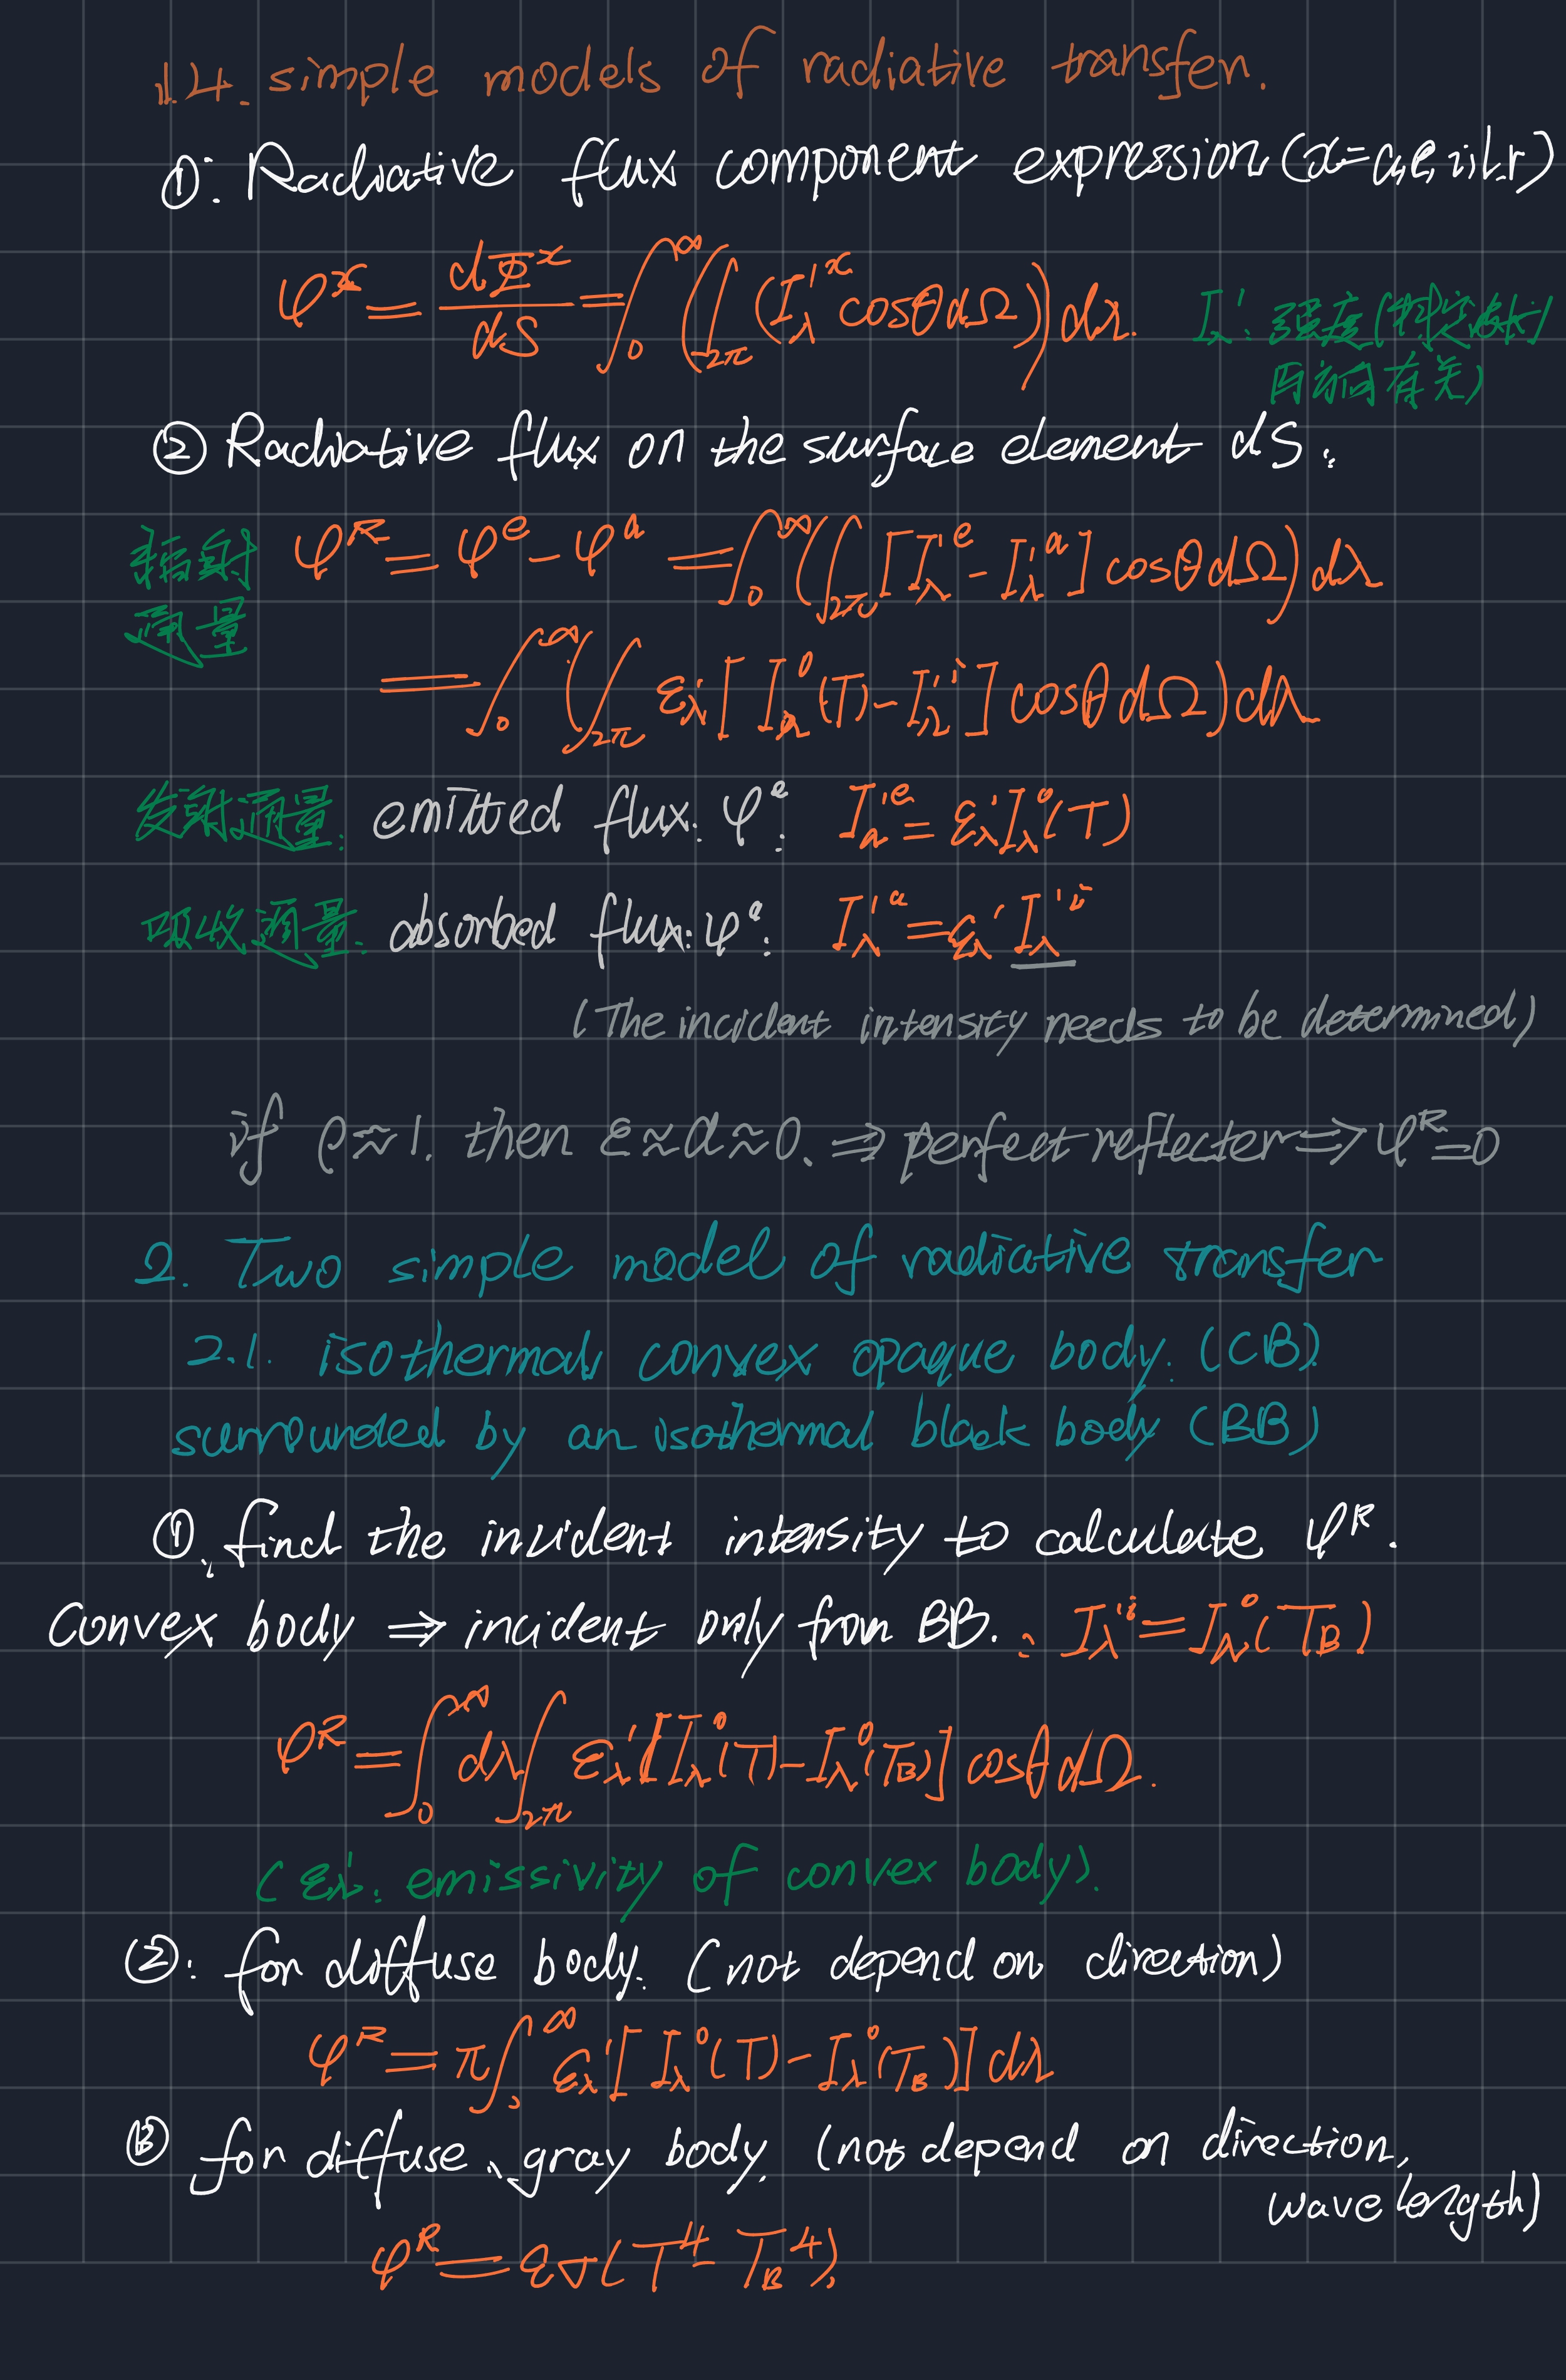 1.4. simple models of radiative transfer.
①: Radiative flux component expression (x=a,e,i,l,r)
φ^x = dΦ^x/dS = ∫_0^∞ (∫_2π (I'_λ^x cosθdΩ)) dλ. I'_λ: 强度(特定波长)
与方向有关)
② Radiative flux on the surface element dS:
辐射 φ^R = φ^e - φ^a = ∫_0^∞ (∫_2π [I'_λ^e - I'_λ^a] cosθdΩ) dλ
通量
= ∫_0^∞ (∫_2π ε'_λ [I_λ^0(T) - I'_λ^i] cosθdΩ) dλ
发射通量: emitted flux: φ^e: I'_λ^e = ε'_λ I_λ^0(T)
吸收通量: absorbed flux: φ^a: I'_λ^a = ε'_λ I'_λ^i
(The incident intensity needs to be determined)
if ρ≈1, then ε≈α≈0. ⇒ perfect reflecter ⇒ φ^R=0
2. Two simple model of radiative transfer
2.1. isothermal, convex opaque body. (CB)
surrounded by an isothermal black body (BB)
①. find the incident intensity to calculate φ^R.
Convex body ⇒ incident only from BB. ∴ I'_λ^i = I_λ^0(T_B)
φ^R = ∫_0^∞ dλ ∫_2π ε'_λ [I_λ^0(T) - I_λ^0(T_B)] cosθdΩ.
(ε'_λ: emissivity of convex body).
②: for diffuse body. (not depend on direction)
φ^R = π∫_0^∞ ε'_λ [I_λ^0(T) - I_λ^0(T_B)] dλ
③ for diffuse、gray body. (not depend on direction,
wave length)
φ^R = εσ(T^4 - T_B^4),